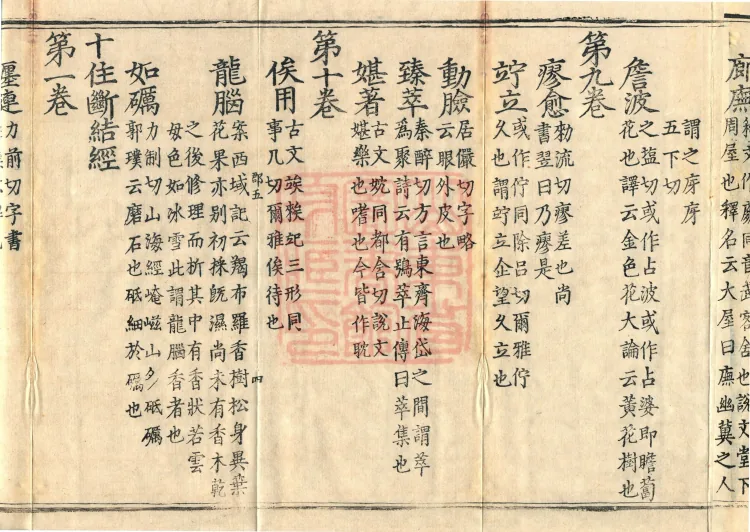 廊廡
釋文作廊同音武客舍也說文堂下
周屋也釋名云大屋曰廡幽冀之人
謂之庌庌
五下切
詹波
之盐切或作占波或作占婆即瞻蔔
花也譯云金色花大論云黃花樹也
第九卷
瘳愈
勑流切瘳差也尚
書翌日乃瘳是
竚立
或作佇同除呂切爾雅佇
久也謂竚立企望久立也
動臉
居儼切字略
云眼外皮也
臻萃
秦醉切方言東齊海岱之間謂萃
爲聚詩云有鴞萃止傳曰萃集也
媅著
古文妉同都含切說文
媅樂也嗜也今皆作耽
第十卷
俟用
古文竢三形同
事几切爾雅俟待也
郎五
四
龍腦
案西域記云羯布羅香樹松身異葉
花果亦別初採既濕尚未有香木乾
之後修理而析其中有香狀若雲
母色如冰雪此謂龍腦香者也
如礪
力制切山海經崦嵫山多砥礪
郭璞云磨石也砥細於礪也
十住斷結經
第一卷
墨連
力前切字書